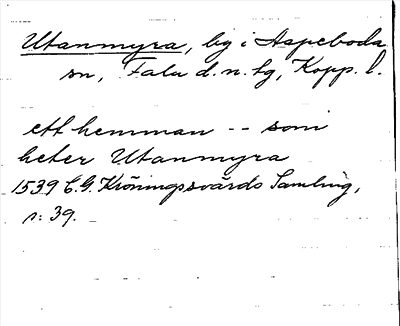 Utanmyra, by i Aspeboda
sn, Falu d. n. tg, Kopp. l.
ett hemman -- som
heter Utanmyra
1539 C.G. Kröningssvärds Samling,
s: 39.